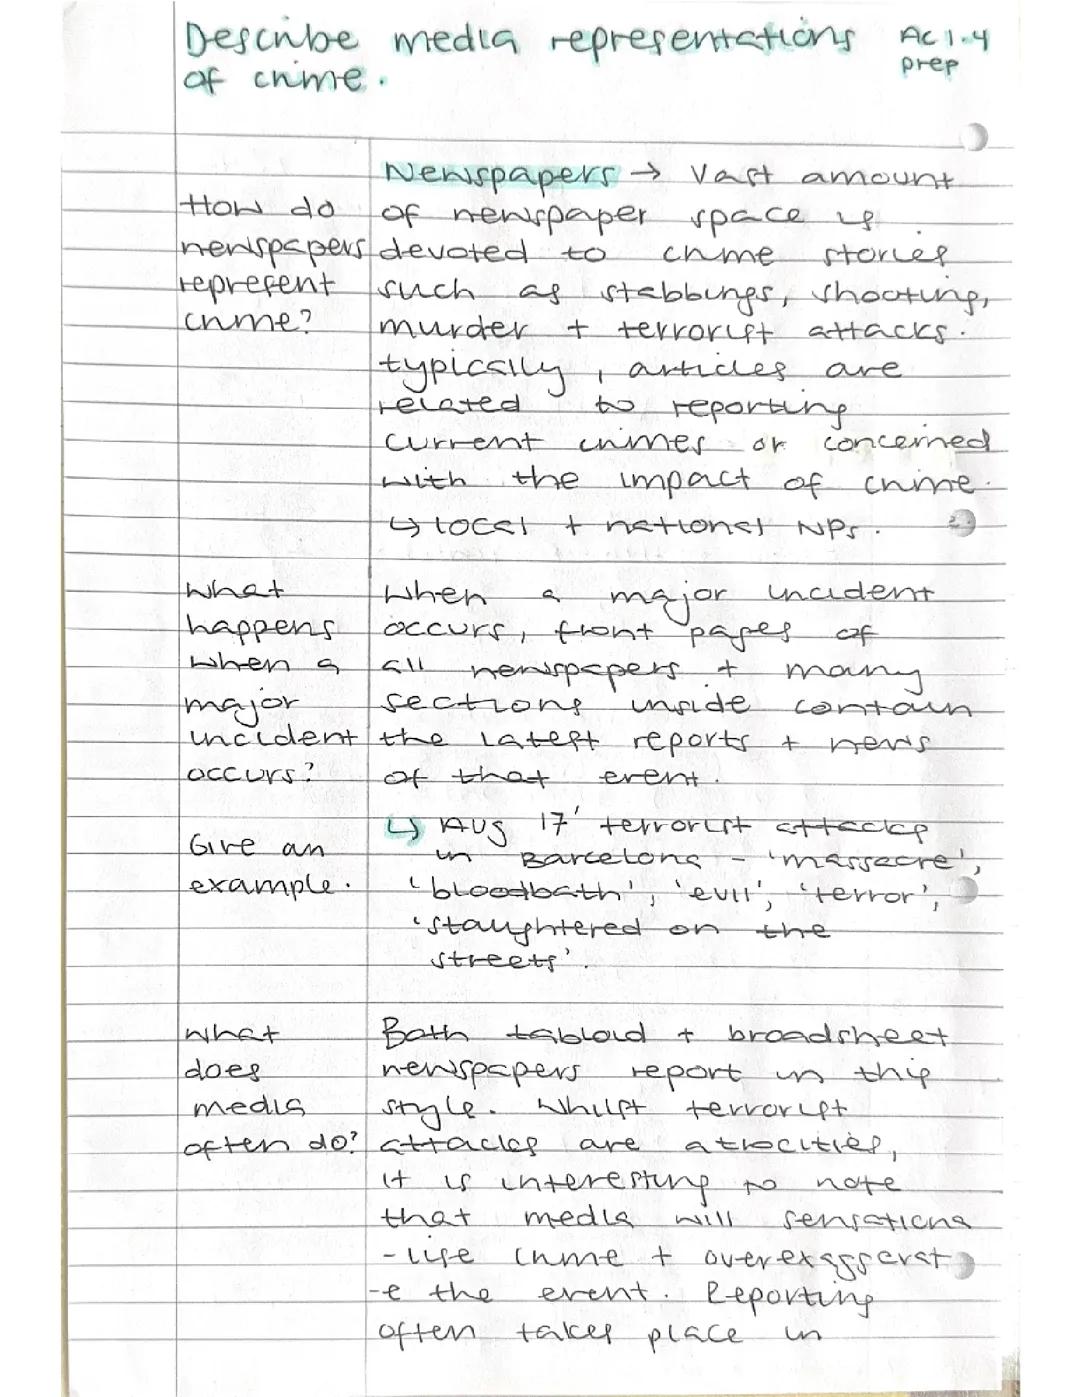 Describe media representations AC 1.4
of crime. prep
How do
newspapers
represent
crime?
Newspapers → Vast amount
of newspaper space is
devoted to crime stories
such as stabbings, shooting,
murder + terrorist attacks.
typically, articles are
related to reporting
current crimes or concerned
with the impact of crime.
↳ local + national NPs.
What
happens
when a
major
incident
occurs?
When a major incident
occurs, front pages of
all newspapers + many
sections inside contain
the latest reports + news
of that event.
Give an
example.
↳ Aug 17' terrorist attacks
in Barcelona - 'massacre',
'bloodbath', 'evil', 'terror',
'slaughtered on the
streets'.
What
does
media
often do?
Both tabloid + broadsheet
newspapers report in this
style. Whilst terrorist
attacks are atrocities,
it is interesting to note
that media will sensationa
-lise crime + overexaggerat
-e the event. Reporting
often takes place in